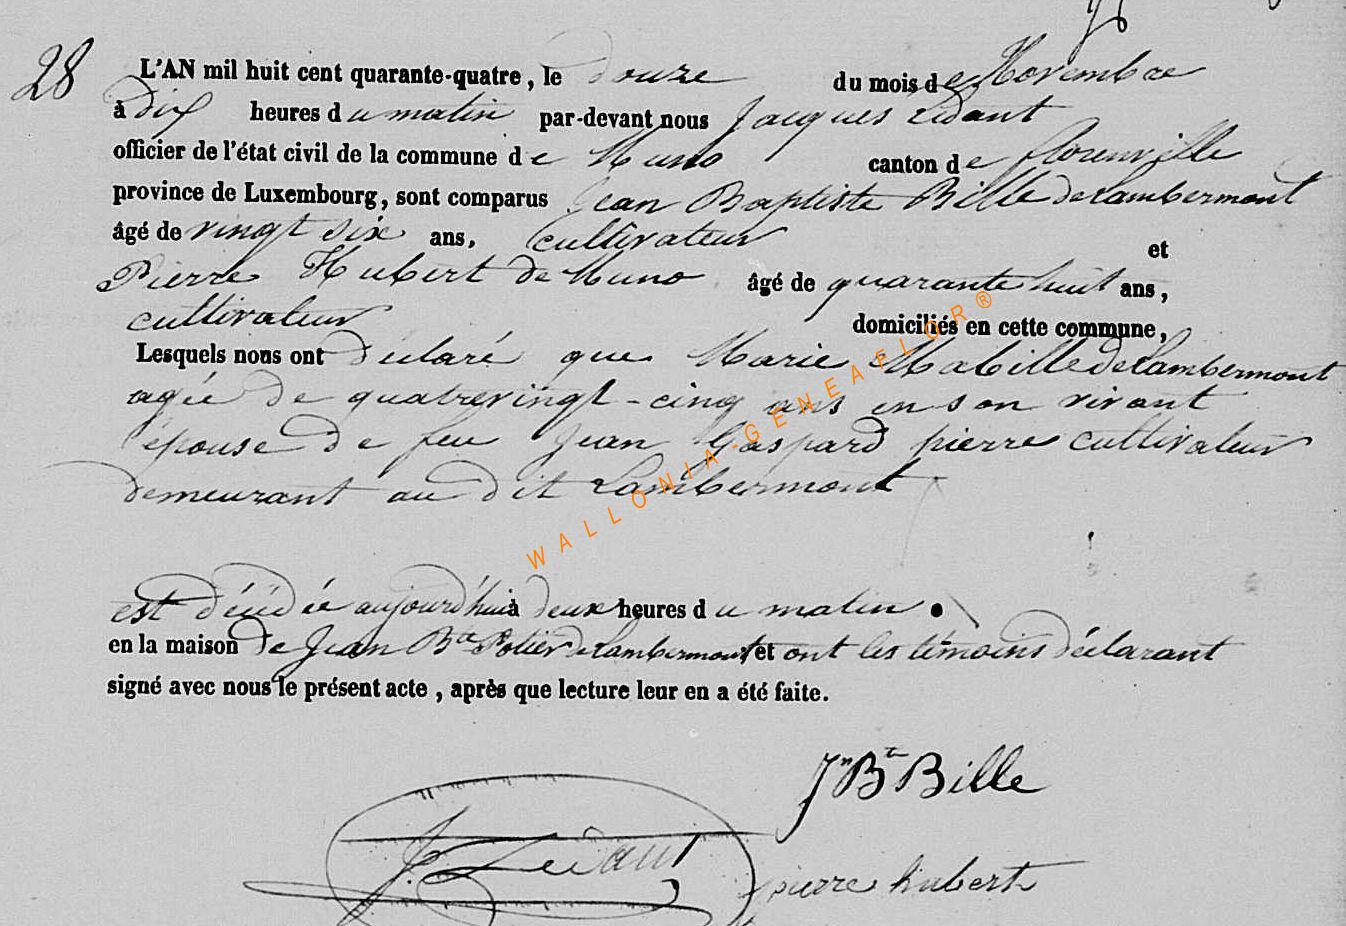 28
L'AN mil huit cent quarante-quatre, le douze du mois de Novembre
à dix heures du matin par-devant nous Jacques Lédant
officier de l'état civil de la commune de Muno canton de florenville
province de Luxembourg, sont comparus Jean Baptiste Bille de Lambermont
âgé de vingt six ans, Cultivateur et
Pierre Hubert de Muno âgé de quarante huit ans,
cultivateur domiciliés en cette commune,
Lesquels nous ont déclaré que Marie Mabille de Lambermont
agée de quatrevingt-cinq ans en son vivant
épouse de feu Jean Gaspard pierre cultivateur
demeurant au dit Lambermont
est décédée aujourd'hui à deux heures du matin.
en la maison de Jean Bte Potier de Lambermont et ont les témoins déclarant
signé avec nous le présent acte, après que lecture leur en a été faite.
Jn Bte Bille
J. Lédant
pierre hubert
WALLONIA-GENEAFLOR®